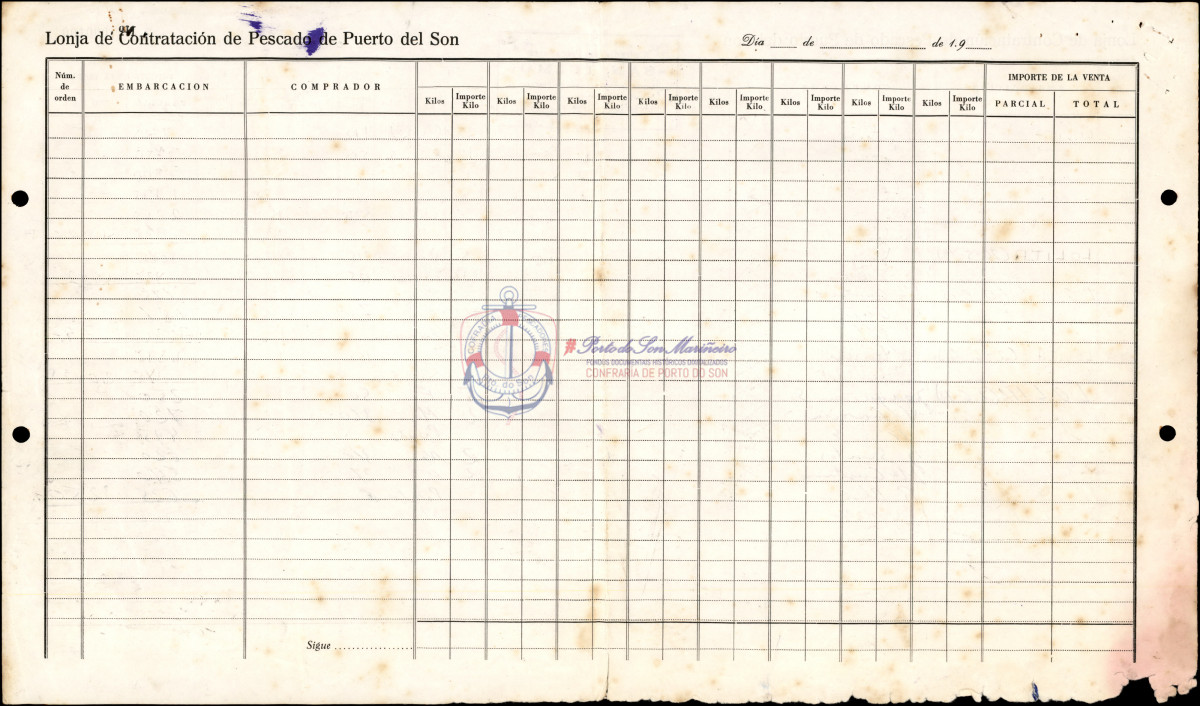 Lonja de Contratación de Pescado de Puerto del Son
Día ____ de ____________ de 1.9____
Núm. de orden
EMBARCACION
COMPRADOR
Kilos Importe Kilo Kilos Importe Kilo Kilos Importe Kilo Kilos Importe Kilo Kilos Importe Kilo Kilos Importe Kilo Kilos Importe Kilo Kilos Importe Kilo
IMPORTE DE LA VENTA
PARCIAL TOTAL
#Porto do Son Mariñeiro
FONDOS DOCUMENTAIS HISTÓRICOS DIGITALIZADOS
CONFRARIA DE PORTO DO SON
Pto. do Son
Sigue ..................